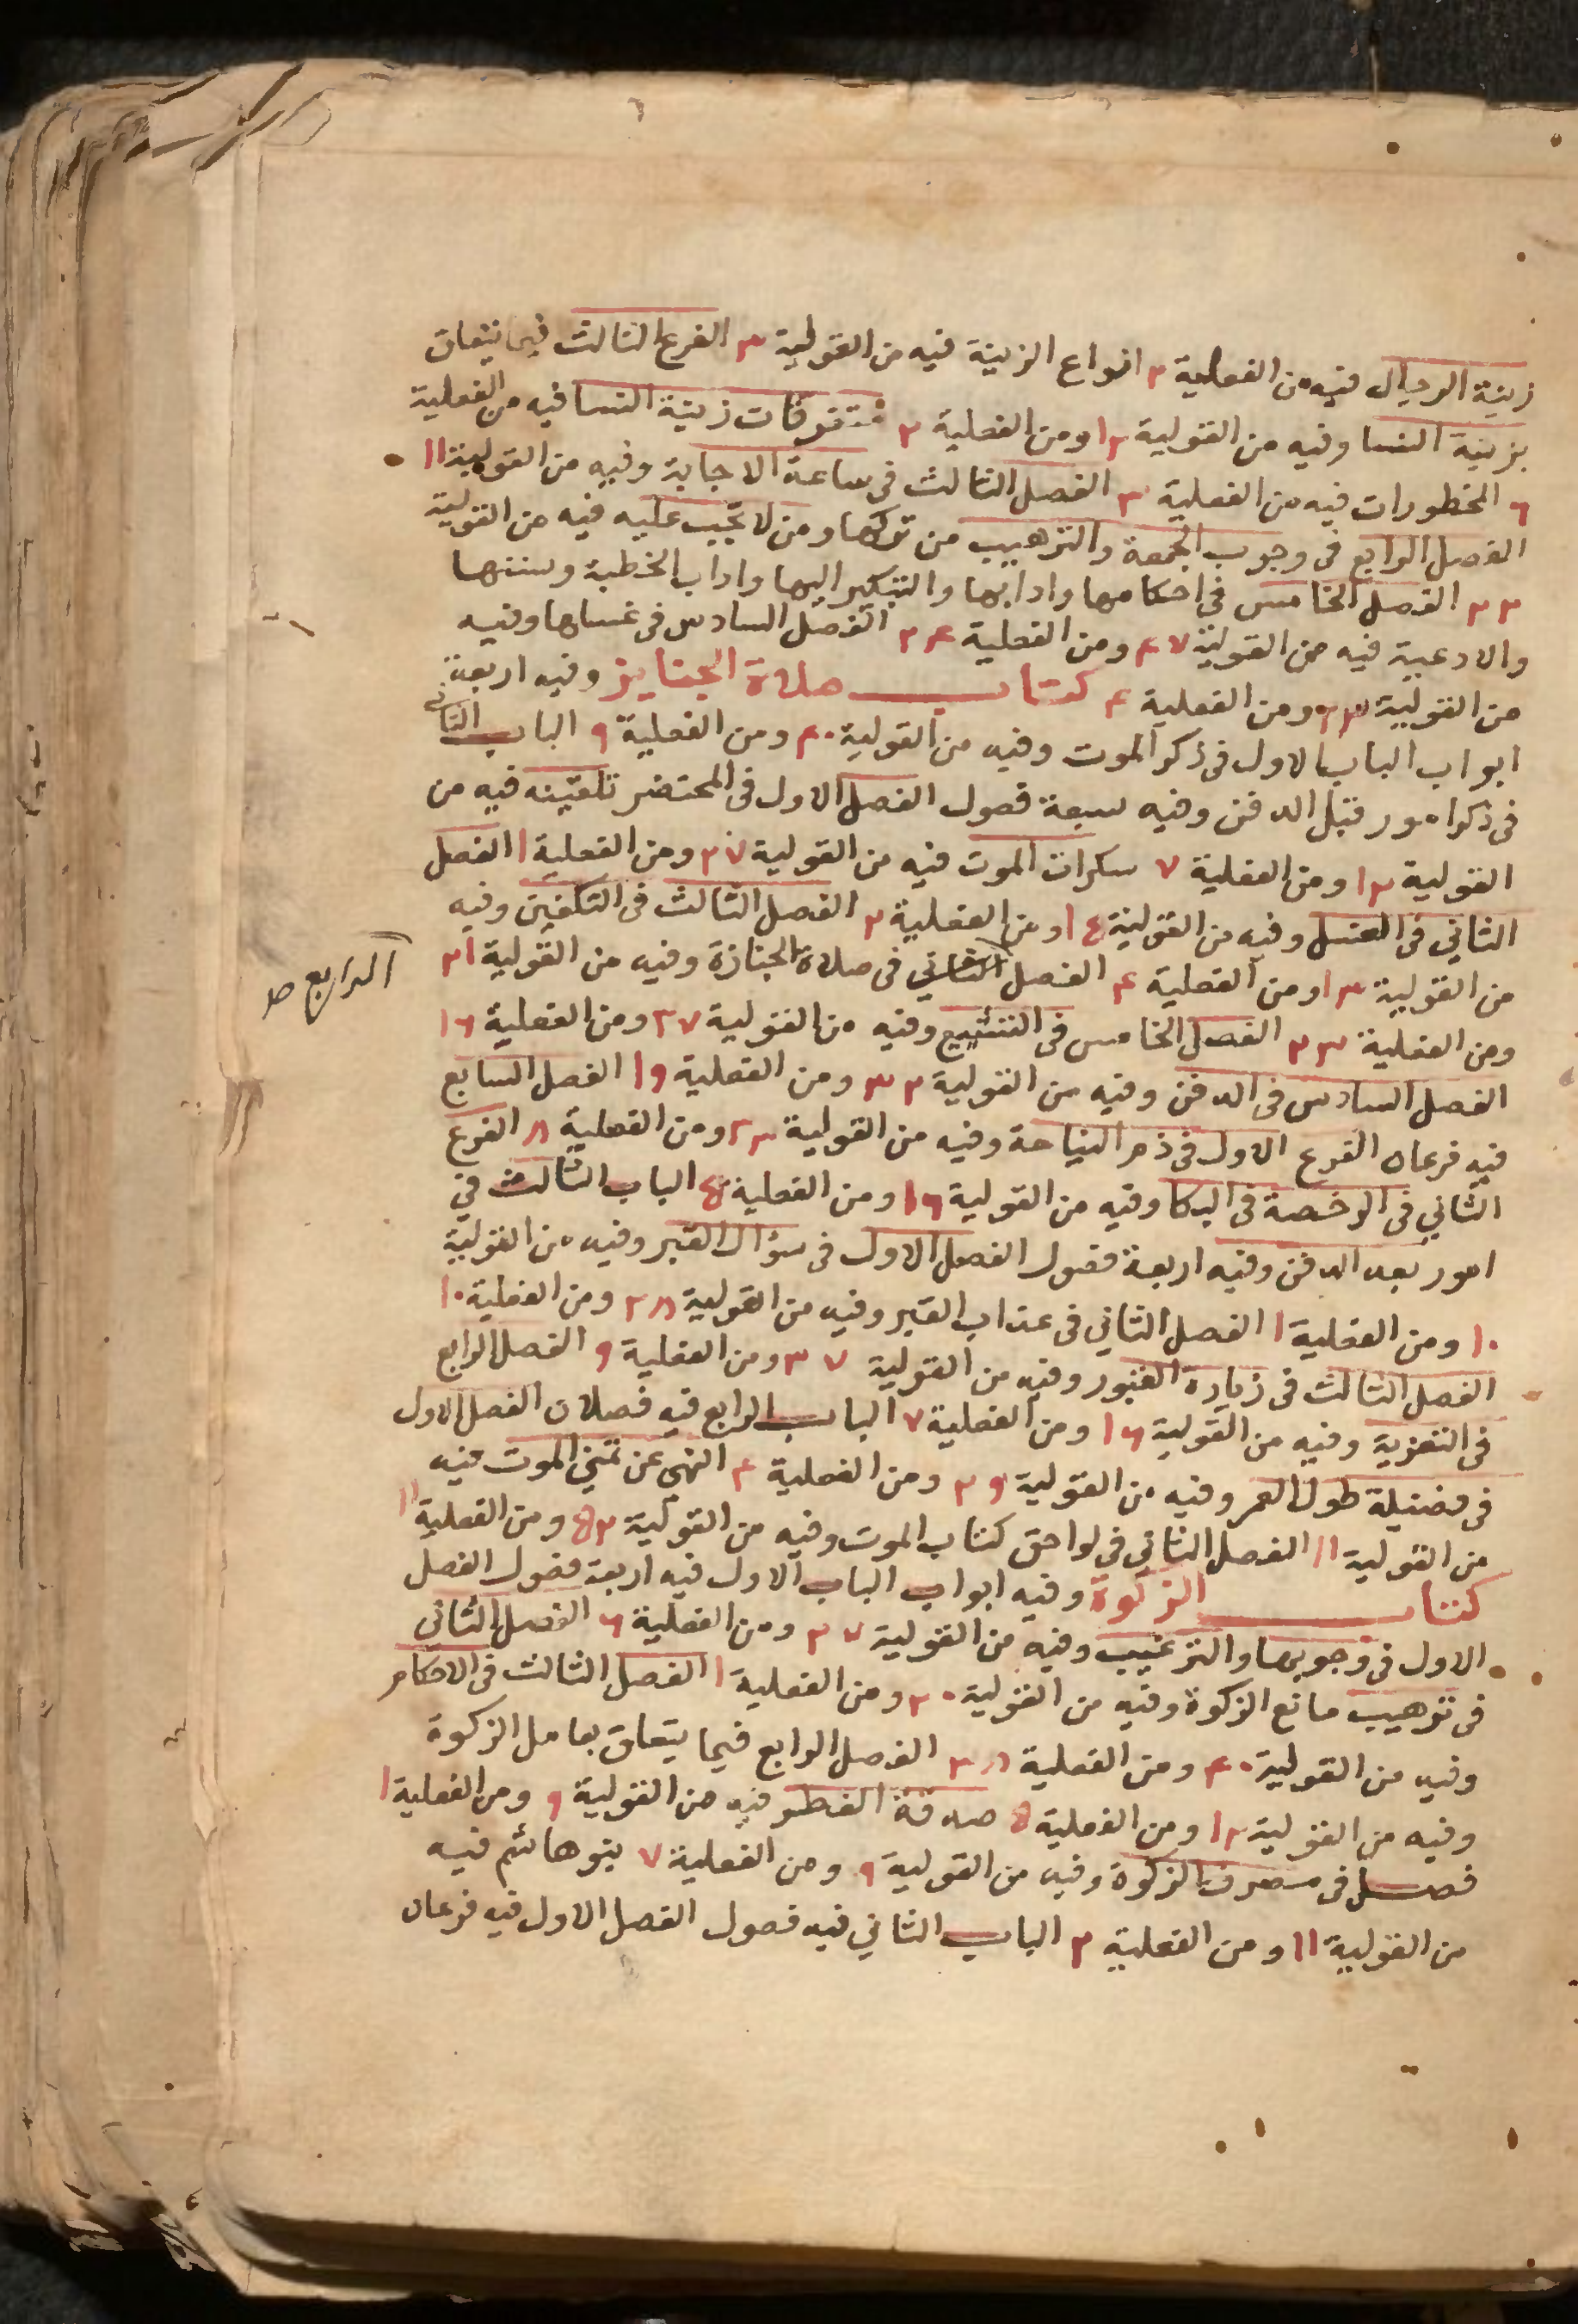 زينة الرجال فيه من الفعلية ٢ انواع الزينة فيه من القولية ٣ الفرع الثالث فيما يتعلق
بزينة النسا وفيه من القولية ١٢ ومن الفعلية ٢ متفرقات زينة النسا فيه من الفعلية
٦ المحظورات فيه من الفعلية ٣ الفصل الثالث في ساعة الاجابة وفيه من القولية ١١
الفصل الرابع في وجوب الجمعة والترهيب من تركها ومن لا تجب عليه فيه من القولية
٢٣ الفصل الخامس في احكامها وادابها والتبكير اليها واداب الخطبة وسننها
والادعية فيه من القولية ٤٧ ومن الفعلية ٢٤ الفصل السادس في غسلها وفيه
من القولية ٢٣ ومن الفعلية ٤ كتاب صلاة الجنايز وفيه اربعة
ابواب الباب الاول في ذكر الموت وفيه من القولية ٤٠ ومن الفعلية ٩ الباب الثاني
في ذكر امور قبل الدفن وفيه سبعة فصول الفصل الاول في المحتضر تلقينه فيه من
القولية ١٢ ومن الفعلية ٧ سكرات الموت فيه من القولية ٢٧ ومن الفعلية ١ الفصل
الثاني في الغسل وفيه من القولية ١٤ ومن الفعلية ٢ الفصل الثالث في التكفين وفيه
من القولية ١٣ ومن الفعلية ٤ الفصل الثاني في صلاة الجنازة وفيه من القولية ٣١
الرابع صح
ومن الفعلية ٢٣ الفصل الخامس في التشييع وفيه من القولية ٢٧ ومن الفعلية ١٦
الفصل السادس في الدفن وفيه من القولية ٣٢ ومن الفعلية ١٩ الفصل السابع
فيه فرعان الفرع الاول في ذم النياحة وفيه من القولية ٢٣ ومن الفعلية ٨ الفرع
الثاني في الرخصة في البكا وفيه من القولية ١٦ ومن الفعلية ٥ الباب الثالث في
امور بعد الدفن وفيه اربعة فصول الفصل الاول في سؤال القبر وفيه من القولية
١٠ ومن الفعلية ١ الفصل الثاني في عذاب القبر وفيه من القولية ٢٨ ومن الفعلية ١٠
الفصل الثالث في زيارة القبور وفيه من القولية ٣٧ ومن الفعلية ٩ الفصل الرابع
في التعزية وفيه من القولية ١٦ ومن الفعلية ٧ الباب الرابع فيه فصلان الفصل الاول
في فضيلة طول العمر وفيه من القولية ٢٩ ومن الفعلية ٤ النهى عن تمني الموت فيه
من القولية ١١ الفصل الثاني في لواحق كتاب الموت وفيه من القولية ٥٢ ومن الفعلية ١١
كتاب الزكوة وفيه ابواب الباب الاول فيه اربعة فصول الفصل
الاول في وجوبها والترغيب وفيه من القولية ٢٧ ومن الفعلية ٦ الفصل الثاني
في ترهيب مانع الزكوة وفيه من القولية ٢٠ ومن الفعلية ١ الفصل الثالث في الاحكام
وفيه من القولية ٤٠ ومن الفعلية ٢٨ الفصل الرابع فيما يتعلق بعامل الزكوة
وفيه من القولية ١٢ ومن الفعلية ٥ صدقة الفطر فيه من القولية ٩ ومن الفعلية ١
فصل في مصرف الزكوة وفيه من القولية ٩ ومن الفعلية ٧ بنو هاشم فيه
من القولية ١١ ومن الفعلية ٢ الباب الثاني فيه فصول الفصل الاول فيه فرعان